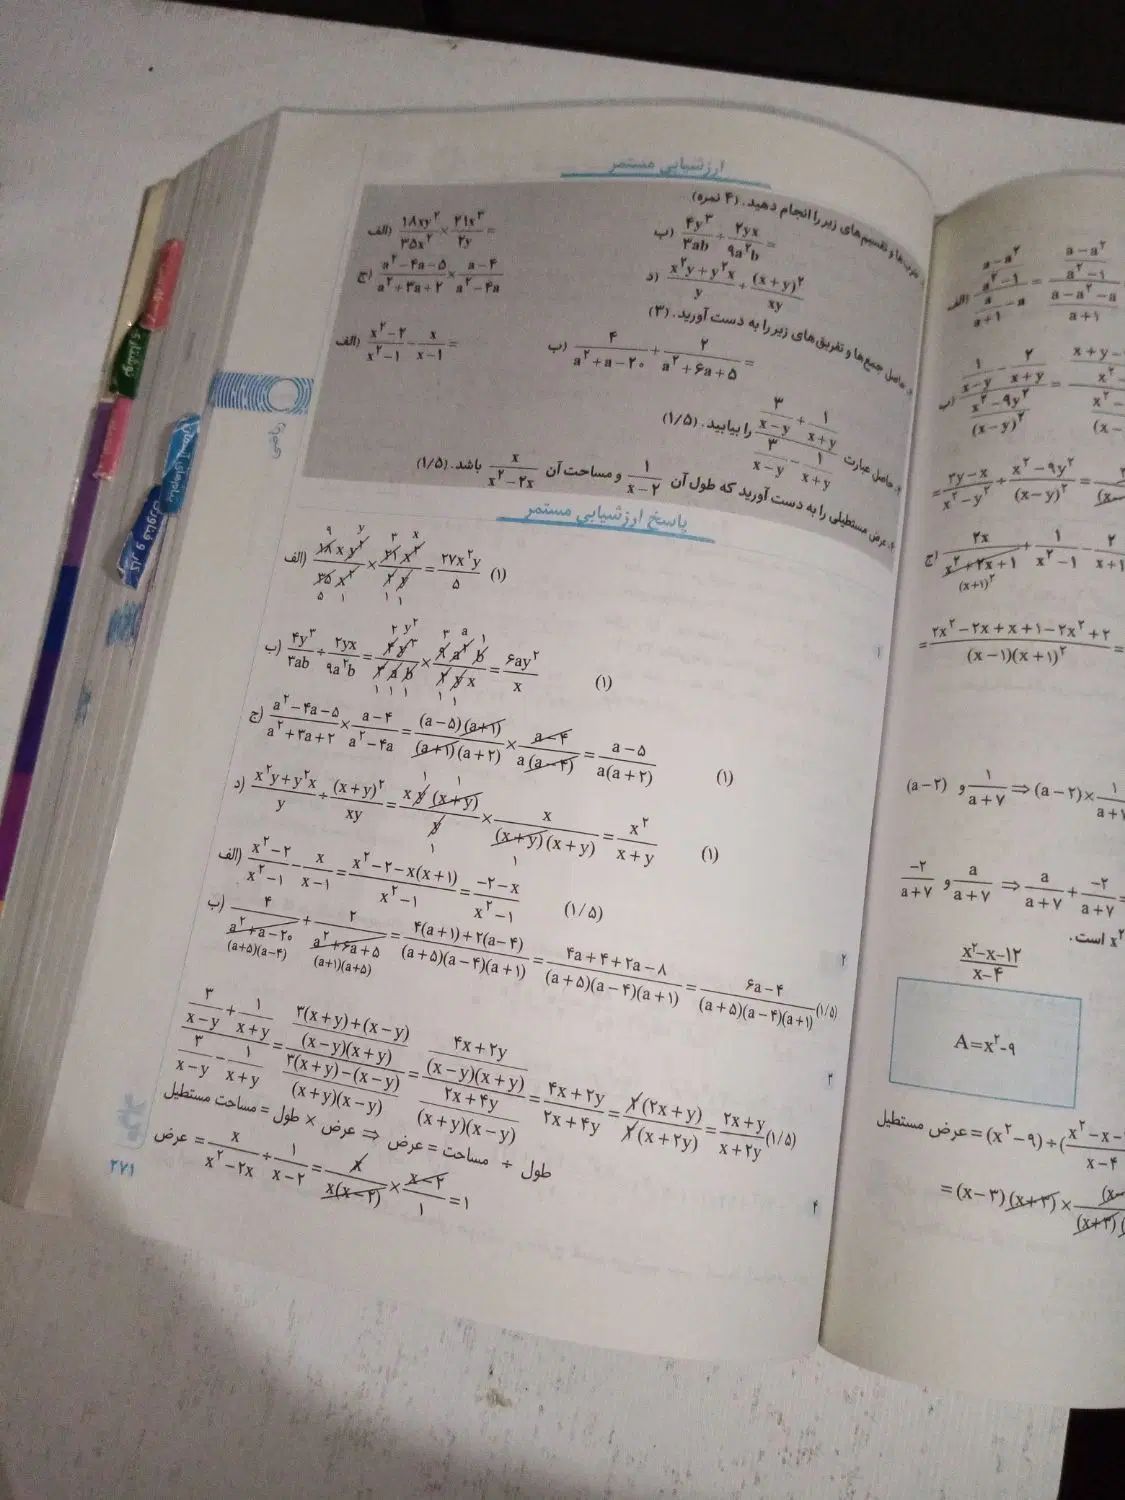 ارزشیابی مستمر
ضرب‌ها و تقسیم‌های زیر را انجام دهید. (۴ نمره)
الف) ۱۸xy²/۳۵x² × ۲۱x³/۲y =
ب) ۴y³/۳ab ÷ ۲yx/۹a²b =
ج) a²-۴a-۵/a²+۳a+۲ × a-۴/a²-۴a
د) x²y+y²x/y ÷ (x+y)²/xy
حاصل جمع‌ها و تفریق‌های زیر را به دست آورید. (۳)
الف) x²-۲/x²-۱ - x/x-۱ =
ب) ۴/a²+a-۲۰ + ۲/a²+۶a+۵ =
حاصل عبارت (۳/x-y + ۱/x+y)/(۳/x-y - ۱/x+y) را بیابید. (۱/۵)
عرض مستطیلی را به دست آورید که طول آن ۱/x-۲ و مساحت آن x/x²-۲x باشد. (۱/۵)
پاسخ ارزشیابی مستمر
۱
الف) ۱۸xy²/۳۵x² × ۲۱x³/۲y = ۲۷x²y/۵ (۱)
ب) ۴y³/۳ab ÷ ۲yx/۹a²b = ۴y³/۳ab × ۹a²b/۲yx = ۶ay²/x (۱)
ج) a²-۴a-۵/a²+۳a+۲ × a-۴/a²-۴a = (a-۵)(a+۱)/(a+۱)(a+۲) × a-۴/a(a-۴) = a-۵/a(a+۲) (۱)
د) x²y+y²x/y ÷ (x+y)²/xy = xy(x+y)/y × x/(x+y)(x+y) = x²/x+y (۱)
۲
الف) x²-۲/x²-۱ - x/x-۱ = x²-۲-x(x+۱)/x²-۱ = -۲-x/x²-۱ (۱/۵)
ب) ۴/a²+a-۲۰ + ۲/a²+۶a+۵ = ۴(a+۱)+۲(a-۴)/(a+۵)(a-۴)(a+۱) = ۴a+۴+۲a-۸/(a+۵)(a-۴)(a+۱) = ۶a-۴/(a+۵)(a-۴)(a+۱) (۱/۵)
(a+۵)(a-۴) (a+۱)(a+۵)
۳
(۳/x-y + ۱/x+y)/(۳/x-y - ۱/x+y) = (۳(x+y)+(x-y)/(x-y)(x+y))/(۳(x+y)-(x-y)/(x+y)(x-y)) = (۴x+۲y/(x-y)(x+y))/(۲x+۴y/(x+y)(x-y)) = ۴x+۲y/۲x+۴y = ۲(۲x+y)/۲(x+۲y) = ۲x+y/x+۲y (۱/۵)
۴
طول ÷ مساحت = عرض ⇒ عرض × طول = مساحت مستطیل
عرض = x/x²-۲x ÷ ۱/x-۲ = x/x(x-۲) × x-۲/۱ = ۱
۲۷۱
الف) (a-a²/a²-۱)/(a/a+۱ - a) = (a-a²/a²-۱)/(a-a²-a/a+۱)
ب) (۱/x-y - ۲/x+y)/(x²-۹y²/(x-y)²) =
= ۳y-x/x²-y² ÷ x²-۹y²/(x-y)² =
ج) ۲x/x²+۲x+۱ + ۱/x²-۱ - ۲/x+۱
(x+۱)²
= ۲x²-۲x+x+۱-۲x²+۲/(x-۱)(x+۱)² =
(a-۲) و ۱/a+۷ ⇒ (a-۲)×
-۲/a+۷ و a/a+۷ ⇒ a/a+۷ + -۲/a+۷ =
x² است.
x²-x-۱۲/x-۴
A=x²-۹
عرض مستطیل = (x²-۹)÷(
= (x-۳)(x+۳)×